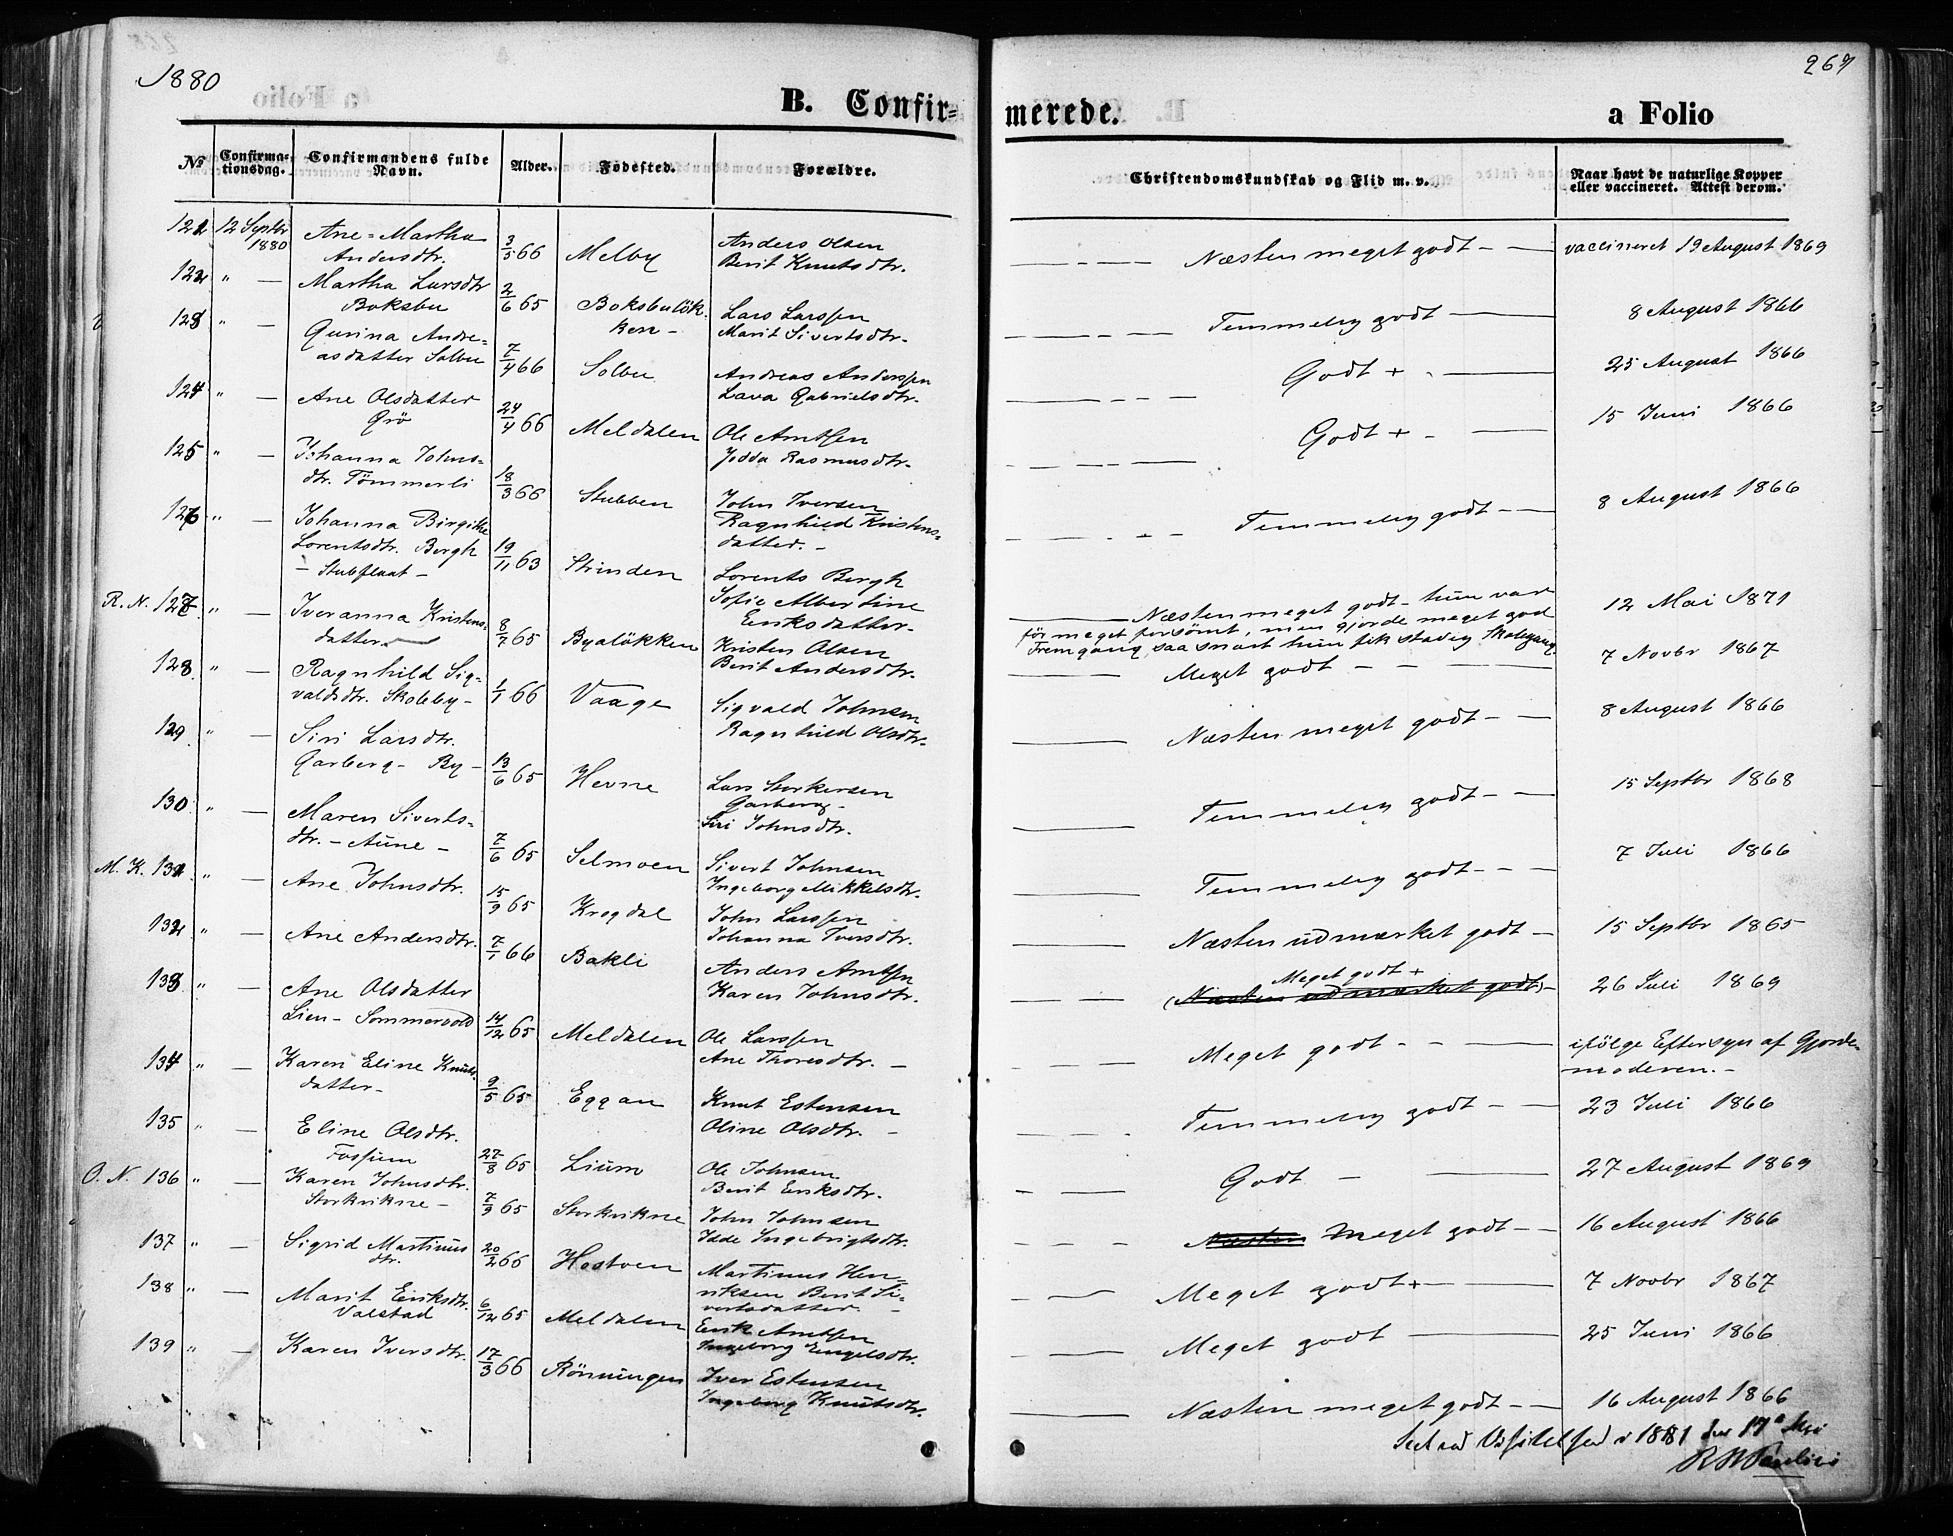 1880
267
B. Confir-
merede.
a Folio
No
Confirma-
tionsdag.
Confirmandens fulde
Navn.
Alder.
Fødested.
Forældre.
Christendomskundskab og Flid m. v.
Naar havt de naturlige Kopper
eller vaccineret. Attest derom.
121 12 Septbr 1880 Ane-Martha
Andersdtr. 3/5 66 Melby Anders Olsen
Berit Knutsdtr.
Næsten meget godt - — vaccineret 19 August 1869
122 " — Martha Larsdtr
Boksbu 2/6 65 Boksbulök-
ken - Lars Larssen
Marit Sivertsdtr.
Temmelig godt — 8 August 1866
123 " — Gurina Andre-
asdatter Solbu 7/4 66 Solbu Andreas Anderssen
Lava Gabrielsdtr.
Godt + - — 25 August 1866
124 " — Ane Olsdatter
Grö 24/4 66 Meldalen Ole Arntsen
Jodda Rasmusdtr.
Godt + - — 15 Juni 1866
125 " — Johanna Johns-
dtr. Tömmerli 18/3 66 Stubben John Iversen
Ragnhild Kristens-
datter. -
Temmelig godt - — 8 August 1866
126 " — Johanna Birgitte
Lorentsdtr. Bergh
- Stubflaat - 19/11 63 Strinden Lorents Bergh
Sofie Albertine
Eriksdatter-
— Næsten meget godt - hun var
för meget forsömt, men gjorde meget god
Fremgang, saa snart hun fik stadig Skolegang.
12 Mai 1871
R. N. 127 " — Iveranna Kristens-
datter 8/7 65 Byalökken Kristen Olsen
Berit Andersdtr.
Meget godt - - — 7 Novbr 1867
128 " — Ragnhild Sig-
valdsdtr. Skoleby - 1/1 66 Vaage Sigvald Johnsen
Ragnhild Olsdtr.
Næsten meget godt - — 8 August 1866
129 " — Siri Larsdtr.
Garberg - By - 13/6 65 Hevne Lars Storkersen
Garberg -
Siri Johnsdtr.
Temmelig godt - — 15 Septbr 1868
130 " — Maren Siverts-
dtr. - Aune - 7/6 65 Selmoen Sivert Johnsen
Ingeborg Mikkelsdtr.
Temmelig godt - - — 7 Juli 1866
M. K. 131 " — Ane Johnsdtr. 15/9 65 Krogdal John Larssen
Johanna Iversdtr.
Næsten udmærket godt - 15 Septbr 1865
132 " — Ane Andersdtr. 7/1 66 Bakli Anders Arntsen
Karen Johnsdtr.
Meget godt +
(Næsten udmærket godt) - 26 Juli 1869
133 " — Ane Olsdatter
Lien - Sommervold 14/12 65 Meldalen Ole Larssen
Ane Thoresdtr. -
Meget godt - - — ifölge Eftersyn af Gjorde-
moderen. -
134 " — Karen Eline Knuts-
datter - 9/5 65 Eggan Knut Estensen
Oline Olsdtr. -
Temmelig godt - — 23 Juli 1866
135 " — Eline Olsdtr.
Fossum 27/8 65 Lium Ole Johnsen
Berit Eriksdtr.
Godt - — 27 August 1869
O. N. 136 " — Karen Johnsdtr.
Storkvikne - 7/9 65 Storkvikne John Johnsen
Idde Ingebrigtsdtr.
Næsten Meget godt - — 16 August 1866
137 " — Sigrid Martinus
dtr. 20/2 66 Hostoen Martinus Hen-
riksen Berit Si-
vertsdatter -
Meget godt + — 7 Novbr 1867
138 " — Marit Eriksdtr.
Valstad 6/12 65 Meldalen Erik Arntsen
Ingeborg Engelsdtr.
Meget godt — 25 Juni 1866
139 " — Karen Iversdtr. 17/3 66 Rönningen Iver Estensen
Ingeborg Knutsdtr.
Næsten meget godt - — 16 August 1866
Seet ved Visitatsen i 1881 den 17 Mai